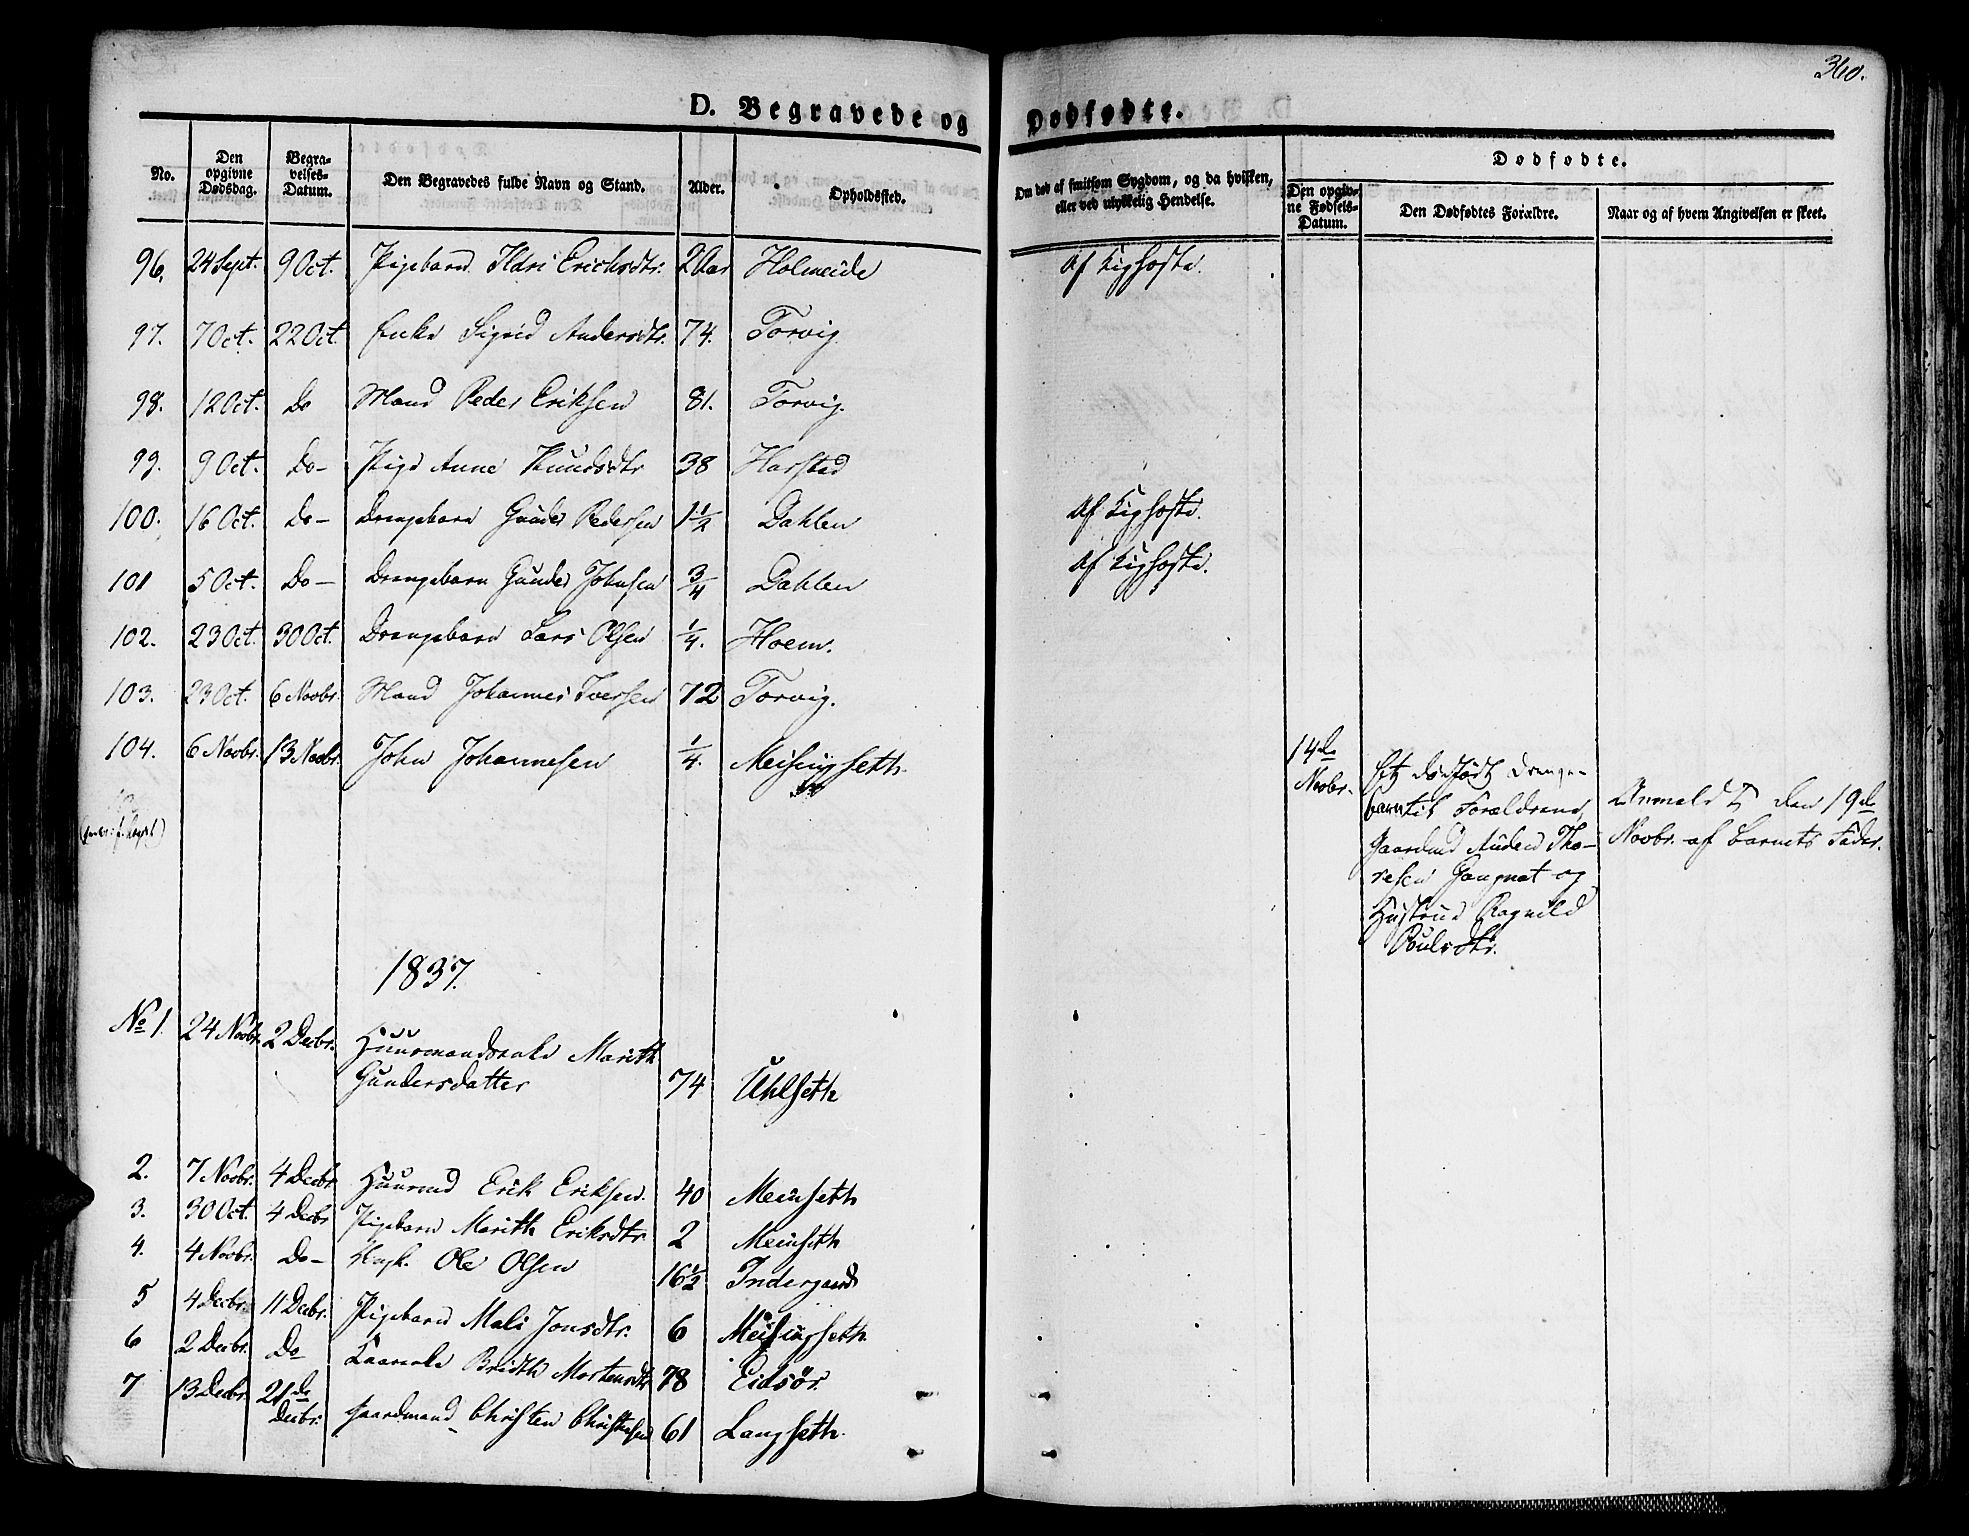 360.
D. Begravede og Dødfødte.
No.
Den opgivne Dødsdag.
Begravelses-Datum.
Den Begravedes fulde Navn og Stand.
Alder.
Opholdssted.
Om død af smitsom Sygdom, og da hvilken, eller ved ulykkelig Hendelse.
Dødfødte.
Den opgivne Fødsels-Datum.
Den Dødfødtes Forældre.
Naar og af hvem Angivelsen er skeet.
96. 24 Sept. 9 Oct. Pigebarn Ildri Erichsdtr. 2 Aar Holmeide Af Kighoste.
97. 7 Oct. 22 Oct. Enke Sigrid Andersdtr. 74. Torvig
98. 12 Oct. Do Mand Peder Eriksen 81. Torvig.
99. 9 Oct. Do- Pige Anne Knudsdtr 38 Harstad
100. 16 Oct. Do- Drengebarn Gunder Pedersen 1 1/2 Dahlen Af Kighoste.
101 5 Oct. Do- Drengebarn Gunder Johnsen 3/4 Dahlen Af Kighoste.
102. 23 Oct. 30 Oct. Drengebarn Lars Olsen 1/4. Hoem.
103. 23 Oct. 6 Novbr. Mand Johannes Iversen 72 Torvig.
104. 6 Novbr. 13 Novbr. John Johannesen 1/4. Meisingseth.
14de Novbr.
Et dødfødt Drenge-
barn til Forældrene,
Gaardmd Auden Tho-
resen Gangnat og
Hustrue Ragnild
Poulsdtr.
Anmeldt den 19de
Novbr. af Barnets Fader.
1837.
No 1. 24 Novbr. 2 Decbr. Huusmandsenke Marith
Gundersdatter 74 Uhlseth
2. 7 Novbr. 4 Decbr. Huusmd Erik Eriksen. 40 Meinseth
3. 30 Oct. 4 Decbr Pigebarn Marith Eriksdtr 2 Meinseth
4. 4 Novbr. Do- Ungk. Ole Olsen 16 1/2 Indergaard
5 4 Decbr. 11 Decbr. Pigebarn Mali Jonsdtr. 6 Meisingseth
6 2 Decbr. Do Kaarenke Bridth Mortensdtr 78 Eidsør.
7 13 Decbr. 21de Decbr. Gaardmand Christen Christensen 61 Langseth.